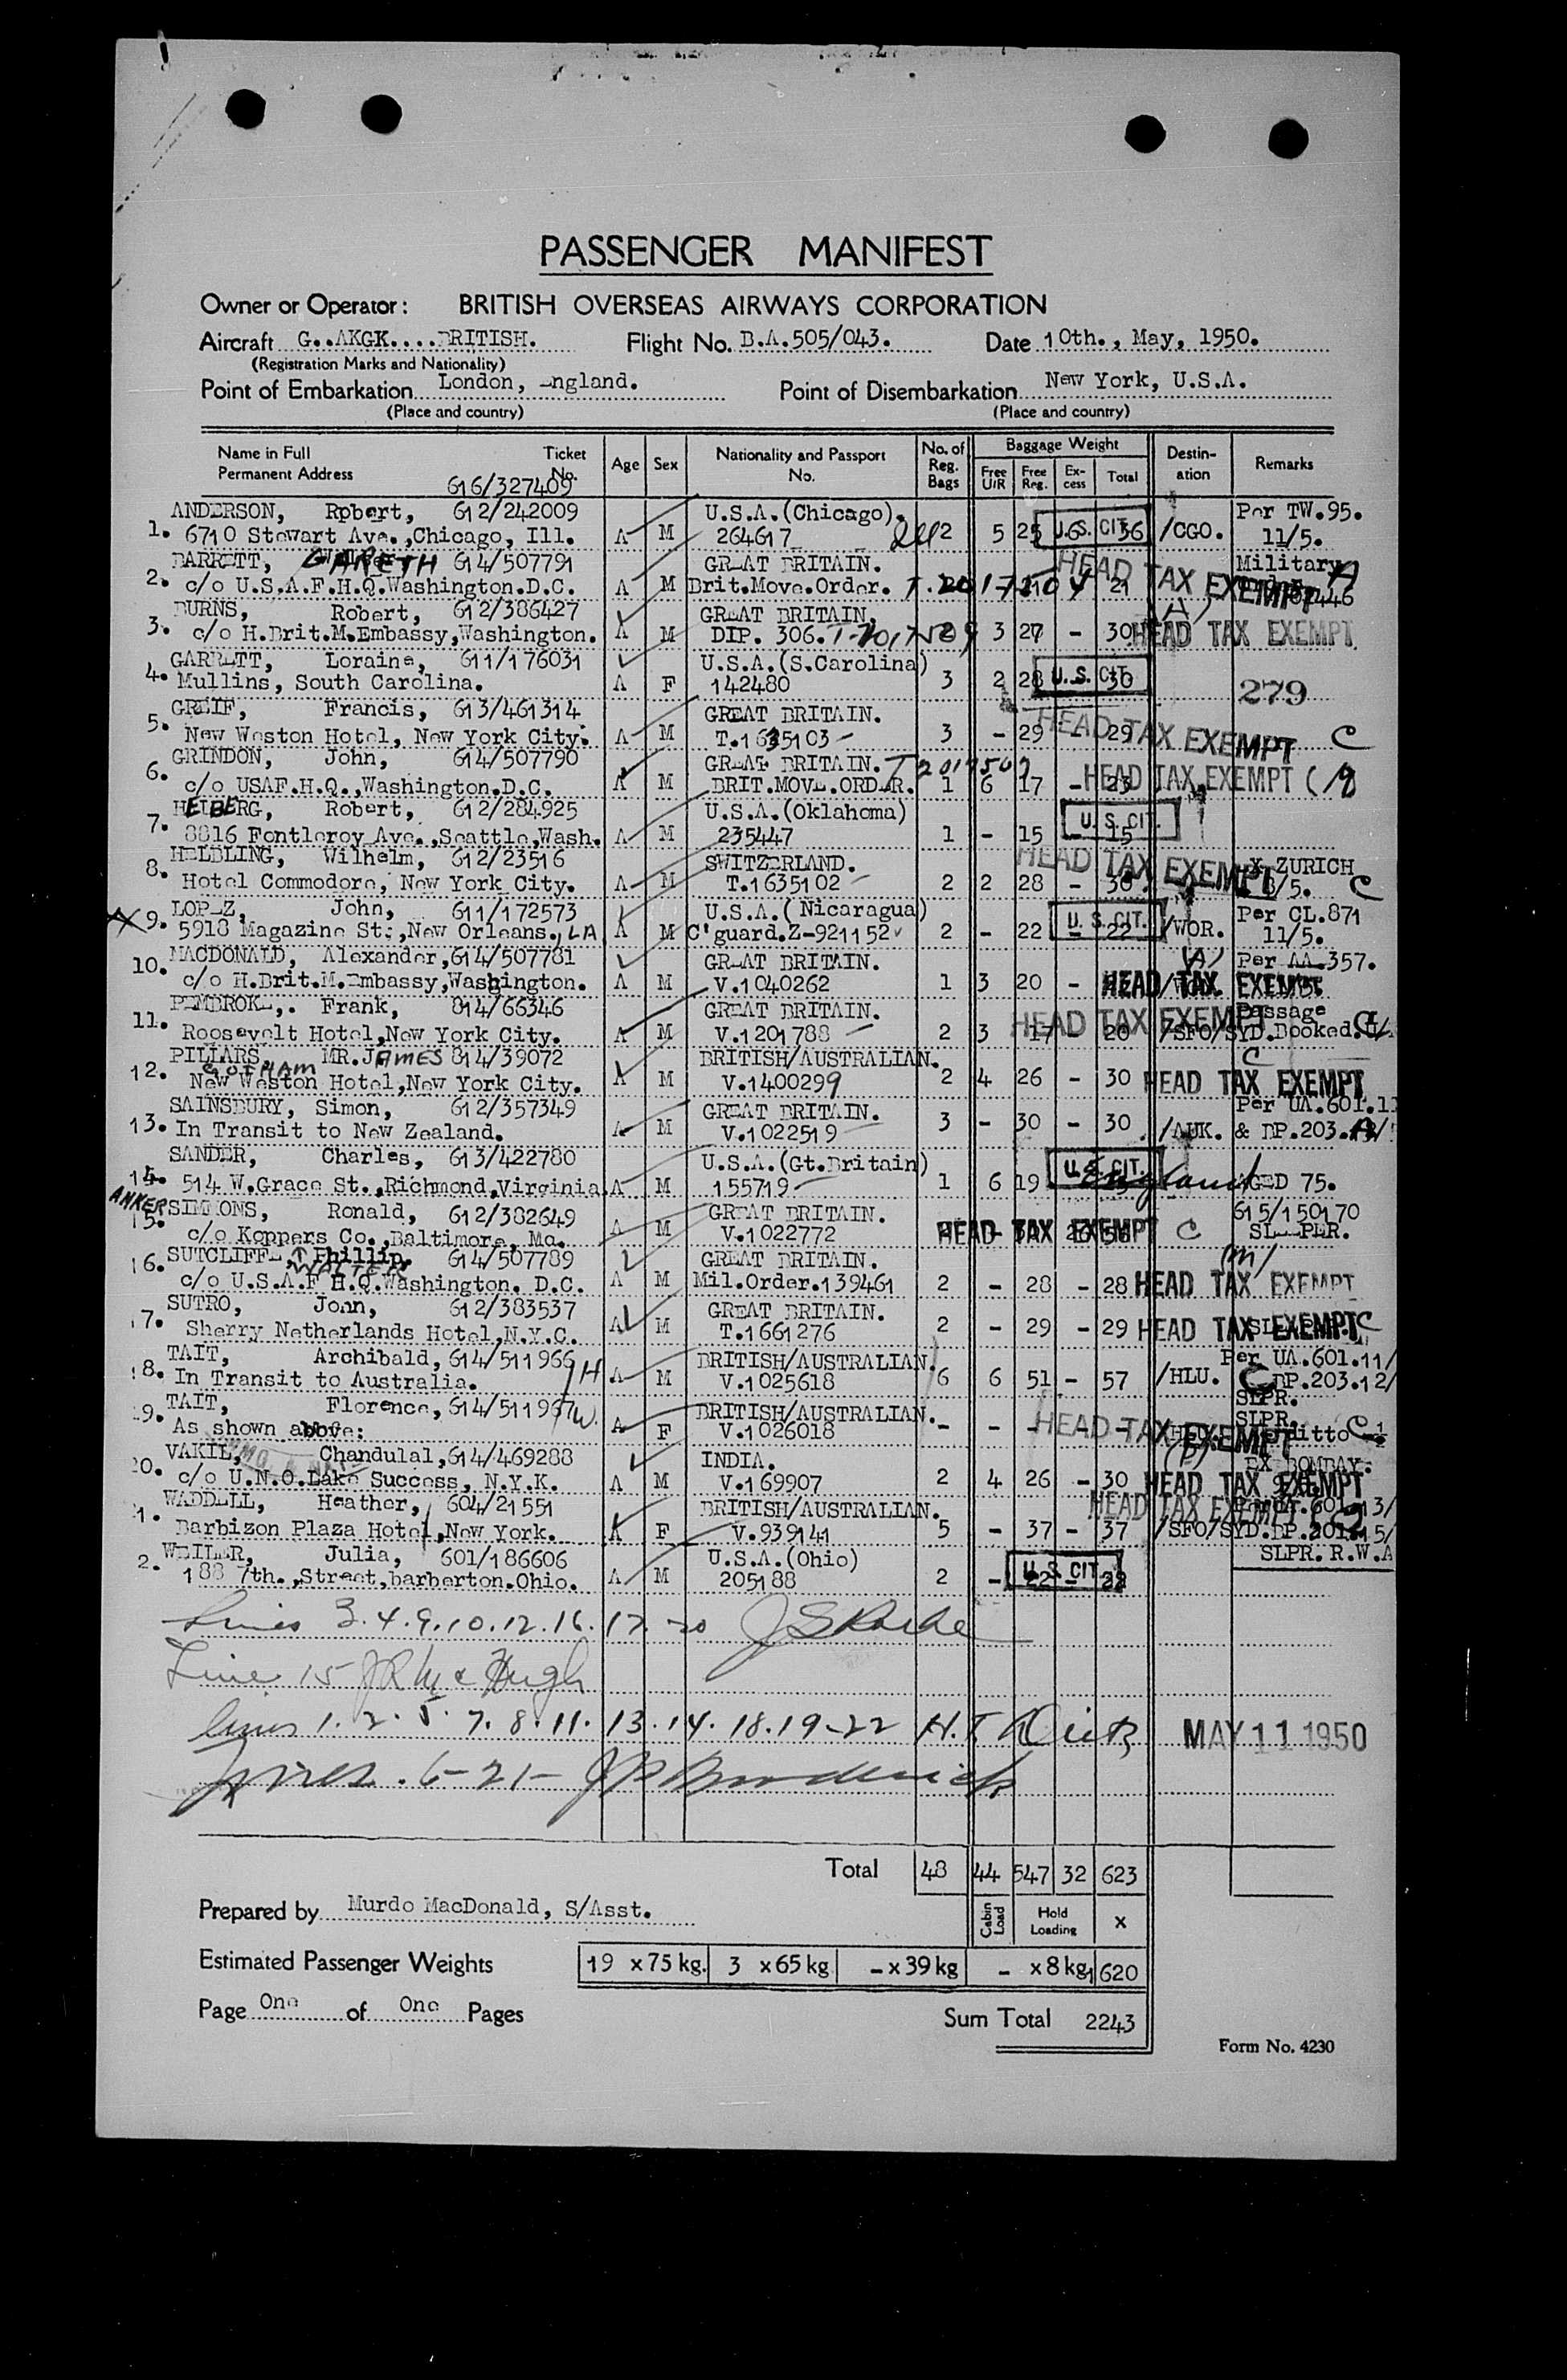 PASSENGER MANIFEST
Owner or Operator: BRITISH OVERSEAS AIRWAYS CORPORATION
Aircraft G..AKGK....BRITISH. Flight No. B.A.505/043. Date 10th., May, 1950.
(Registration Marks and Nationality)
Point of Embarkation London, England. Point of Disembarkation New York, U.S.A.
(Place and country) (Place and country)
Name in Full Permanent Address Ticket No. Age Sex Nationality and Passport No. No. of Reg. Bags Baggage Weight Free U/R Free Reg. Ex-cess Total Destin-ation Remarks
616/327409
ANDERSON, Robert, 612/242009 U.S.A.(Chicago). Per TW.95.
1. 6710 Stewart Ave.,Chicago, Ill. A M 264617 2 5 25 6 36 U.S. CIT. /CGO. 11/5.
BARRETT, GARETH 614/507791 GREAT BRITAIN. HEAD TAX EXEMPT Military
2. c/o U.S.A.F.H.Q.Washington.D.C. A M Brit.Move.Order. 21
BURNS, Robert, 612/386427 GREAT BRITAIN.
3. c/o H.Brit.M.Embassy,Washington. A M DIP. 306. 3 27 - 30 HEAD TAX EXEMPT
GARRETT, Loraine, 611/176031 U.S.A.(S.Carolina)
4. Mullins, South Carolina. A F 142480 3 2 28 30 U.S. CIT. 279
GREIF, Francis, 613/461314 GREAT BRITAIN.
5. New Weston Hotel, New York City. A M T.1635103 3 - 29 - 29 HEAD TAX EXEMPT C
GRINDON, John, 614/507790 GREAT BRITAIN.
6. c/o USAF.H.Q.,Washington.D.C. A M BRIT.MOVE.ORDER. 1 6 17 - 23 HEAD TAX EXEMPT
HELBERG, Robert, 612/284925 U.S.A.(Oklahoma)
7. 8816 Fontleroy Ave.,Seattle,Wash. A M 235447 1 - 15 - 15 U.S. CIT.
HELBLING, Wilhelm, 612/23516 SWITZERLAND. HEAD TAX EXEMPT EX ZURICH
8. Hotel Commodore, New York City. A M T.1635102 2 2 28 - 30 8/5. C
LOPEZ, John, 611/172573 U.S.A.(Nicaragua) Per CL.871
X 9. 5918 Magazine St.,New Orleans., LA A M C'guard.Z-921152 2 - 22 - 22 U.S. CIT. /WOR. 11/5.
MACDONALD, Alexander, 614/507781 GREAT BRITAIN. (A) Per AA.357.
10. c/o H.Brit.M.Embassy,Washington. A M V.1040262 1 3 20 - HEAD TAX EXEMPT
PEMBROKE,. Frank, 814/66346 GREAT BRITAIN. HEAD TAX EXEMPT Passage
11. Roosevelt Hotel,New York City. A M V.1201788 2 3 17 - 20 /SFO/SYD. Booked.
PILLARS, MR.JAMES 814/39072 BRITISH/AUSTRALIAN. C
GOTHAM
12. New Weston Hotel,New York City. A M V.1400299 2 4 26 - 30 HEAD TAX EXEMPT
SAINSBURY, Simon, 612/357349 GREAT BRITAIN. Per UA.601.11
13. In Transit to New Zealand. A M V.1022519 3 - 30 - 30 /AUK. & BP.203.
SANDER, Charles, 613/422780 U.S.A.(Gt.Britain) U.S. CIT.
14. 514 W.Grace St.,Richmond,Virginia. A M 155719 1 6 19 England AGED 75.
ANKER SIMMONS, Ronald, 612/382649 GREAT BRITAIN. 615/150170
15. c/o Koppers Co.,Baltimore, Md. A M V.1022772 HEAD TAX EXEMPT C SLEEPER.
SUTCLIFFE Phillip, 614/507789 GREAT BRITAIN. (M)
WALTER
16. c/o U.S.A.F H.Q.Washington. D.C. A M Mil.Order.139461 2 - 28 - 28 HEAD TAX EXEMPT
SUTRO, John, 612/383537 GREAT BRITAIN.
17. Sherry Netherlands Hotel,N.Y.C. A M T.1661276 2 - 29 - 29 HEAD TAX EXEMPT C
TAIT, Archibald, 614/511966 H BRITISH/AUSTRALIAN. Per UA.601.11/
18. In Transit to Australia. A M V.1025618 6 6 51 - 57 /HLU. C BP.203.12/
SLPR.
TAIT, Florence, 614/511967 W. BRITISH/AUSTRALIAN. SLPR.
19. As shown above: A F V.1026018 - - - - HEAD TAX EXEMPT ditto C
VAKIL, Chandulal, 614/469288 INDIA. EX BOMBAY:
20. c/o U.N.O.Lake Success, N.Y.K. A M V.169907 2 4 26 - 30 HEAD TAX EXEMPT
WADDELL, Heather, 604/21551 BRITISH/AUSTRALIAN. HEAD TAX EXEMPT
21. Barbizon Plaza Hotel,New York. A F V.939141 5 - 37 - 37 /SFO/SYD.
WEILER, Julia, 601/186606 U.S.A.(Ohio) SLPR. R.W.A
22. 188 7th.,Street,barberton.Ohio. A M 205188 2 - 22 - 22 U.S. CIT.
Lines 3.4.9.10.12.16.17.20
Line 15 J R McHugh
lines 1.2.5.7.8.11.13.14.18.19-22 H.T. MAY 11 1950
Lines . 6-21- Broderick
Total 48 44 547 32 623
Prepared by Murdo MacDonald, S/Asst. Cabin Load Hold Loading X
Estimated Passenger Weights 19 x 75 kg. 3 x 65 kg - x 39 kg - x 8 kg 1620
Page One of One Pages Sum Total 2243
Form No. 4230